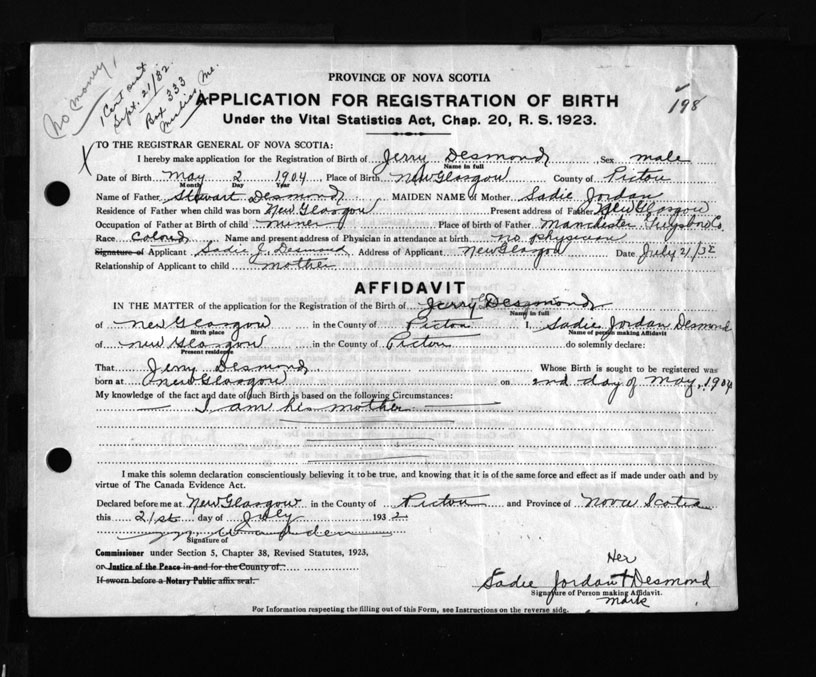 No money,
1 Cert out
Sept. 21/32
Box 333
PROVINCE OF NOVA SCOTIA
APPLICATION FOR REGISTRATION OF BIRTH
198
Under the Vital Statistics Act, Chap. 20, R. S. 1923.
X TO THE REGISTRAR GENERAL OF NOVA SCOTIA:
I hereby make application for the Registration of Birth of Jerry Desmond, Sex male
Name in full
Date of Birth May 2 1904 Place of Birth New Glasgow County of Pictou
Month Day Year
Name of Father Stewart Desmond MAIDEN NAME of Mother Sadie Jordan
Residence of Father when child was born New Glasgow Present address of Father New Glasgow
Occupation of Father at Birth of child miner Place of birth of Father Manchester Guysboro Co.
Race Colored Name and present address of Physician in attendance at birth no physician
Signature of Applicant Sadie J. Desmond Address of Applicant New Glasgow Date July 21/32
Relationship of Applicant to child mother
AFFIDAVIT
IN THE MATTER of the application for the Registration of the Birth of Jerry Desmond
Name in full
of New Glasgow in the County of Pictou I, Sadie Jordan Desmond
Birth place Name of person making Affidavit
of New Glasgow in the County of Pictou do solemnly declare:
Present residence
That Jerry Desmond Whose Birth is sought to be registered was
born at New Glasgow on 2nd day of May, 1904
My knowledge of the fact and date of such Birth is based on the following Circumstances:
I am his mother
I make this solemn declaration conscientiously believing it to be true, and knowing that it is of the same force and effect as if made under oath and by
virtue of The Canada Evidence Act.
Declared before me at New Glasgow in the County of Pictou and Province of Nova Scotia
this 21st day of July 1932
Signature of
Commissioner under Section 5, Chapter 38, Revised Statutes, 1923,
or Justice of the Peace in and for the County of
If sworn before a Notary Public affix seal.
Her
Sadie Jordan + Desmond
Signature of Person making Affidavit.
Mark
For Information respecting the filling out of this Form, see Instructions on the reverse side.